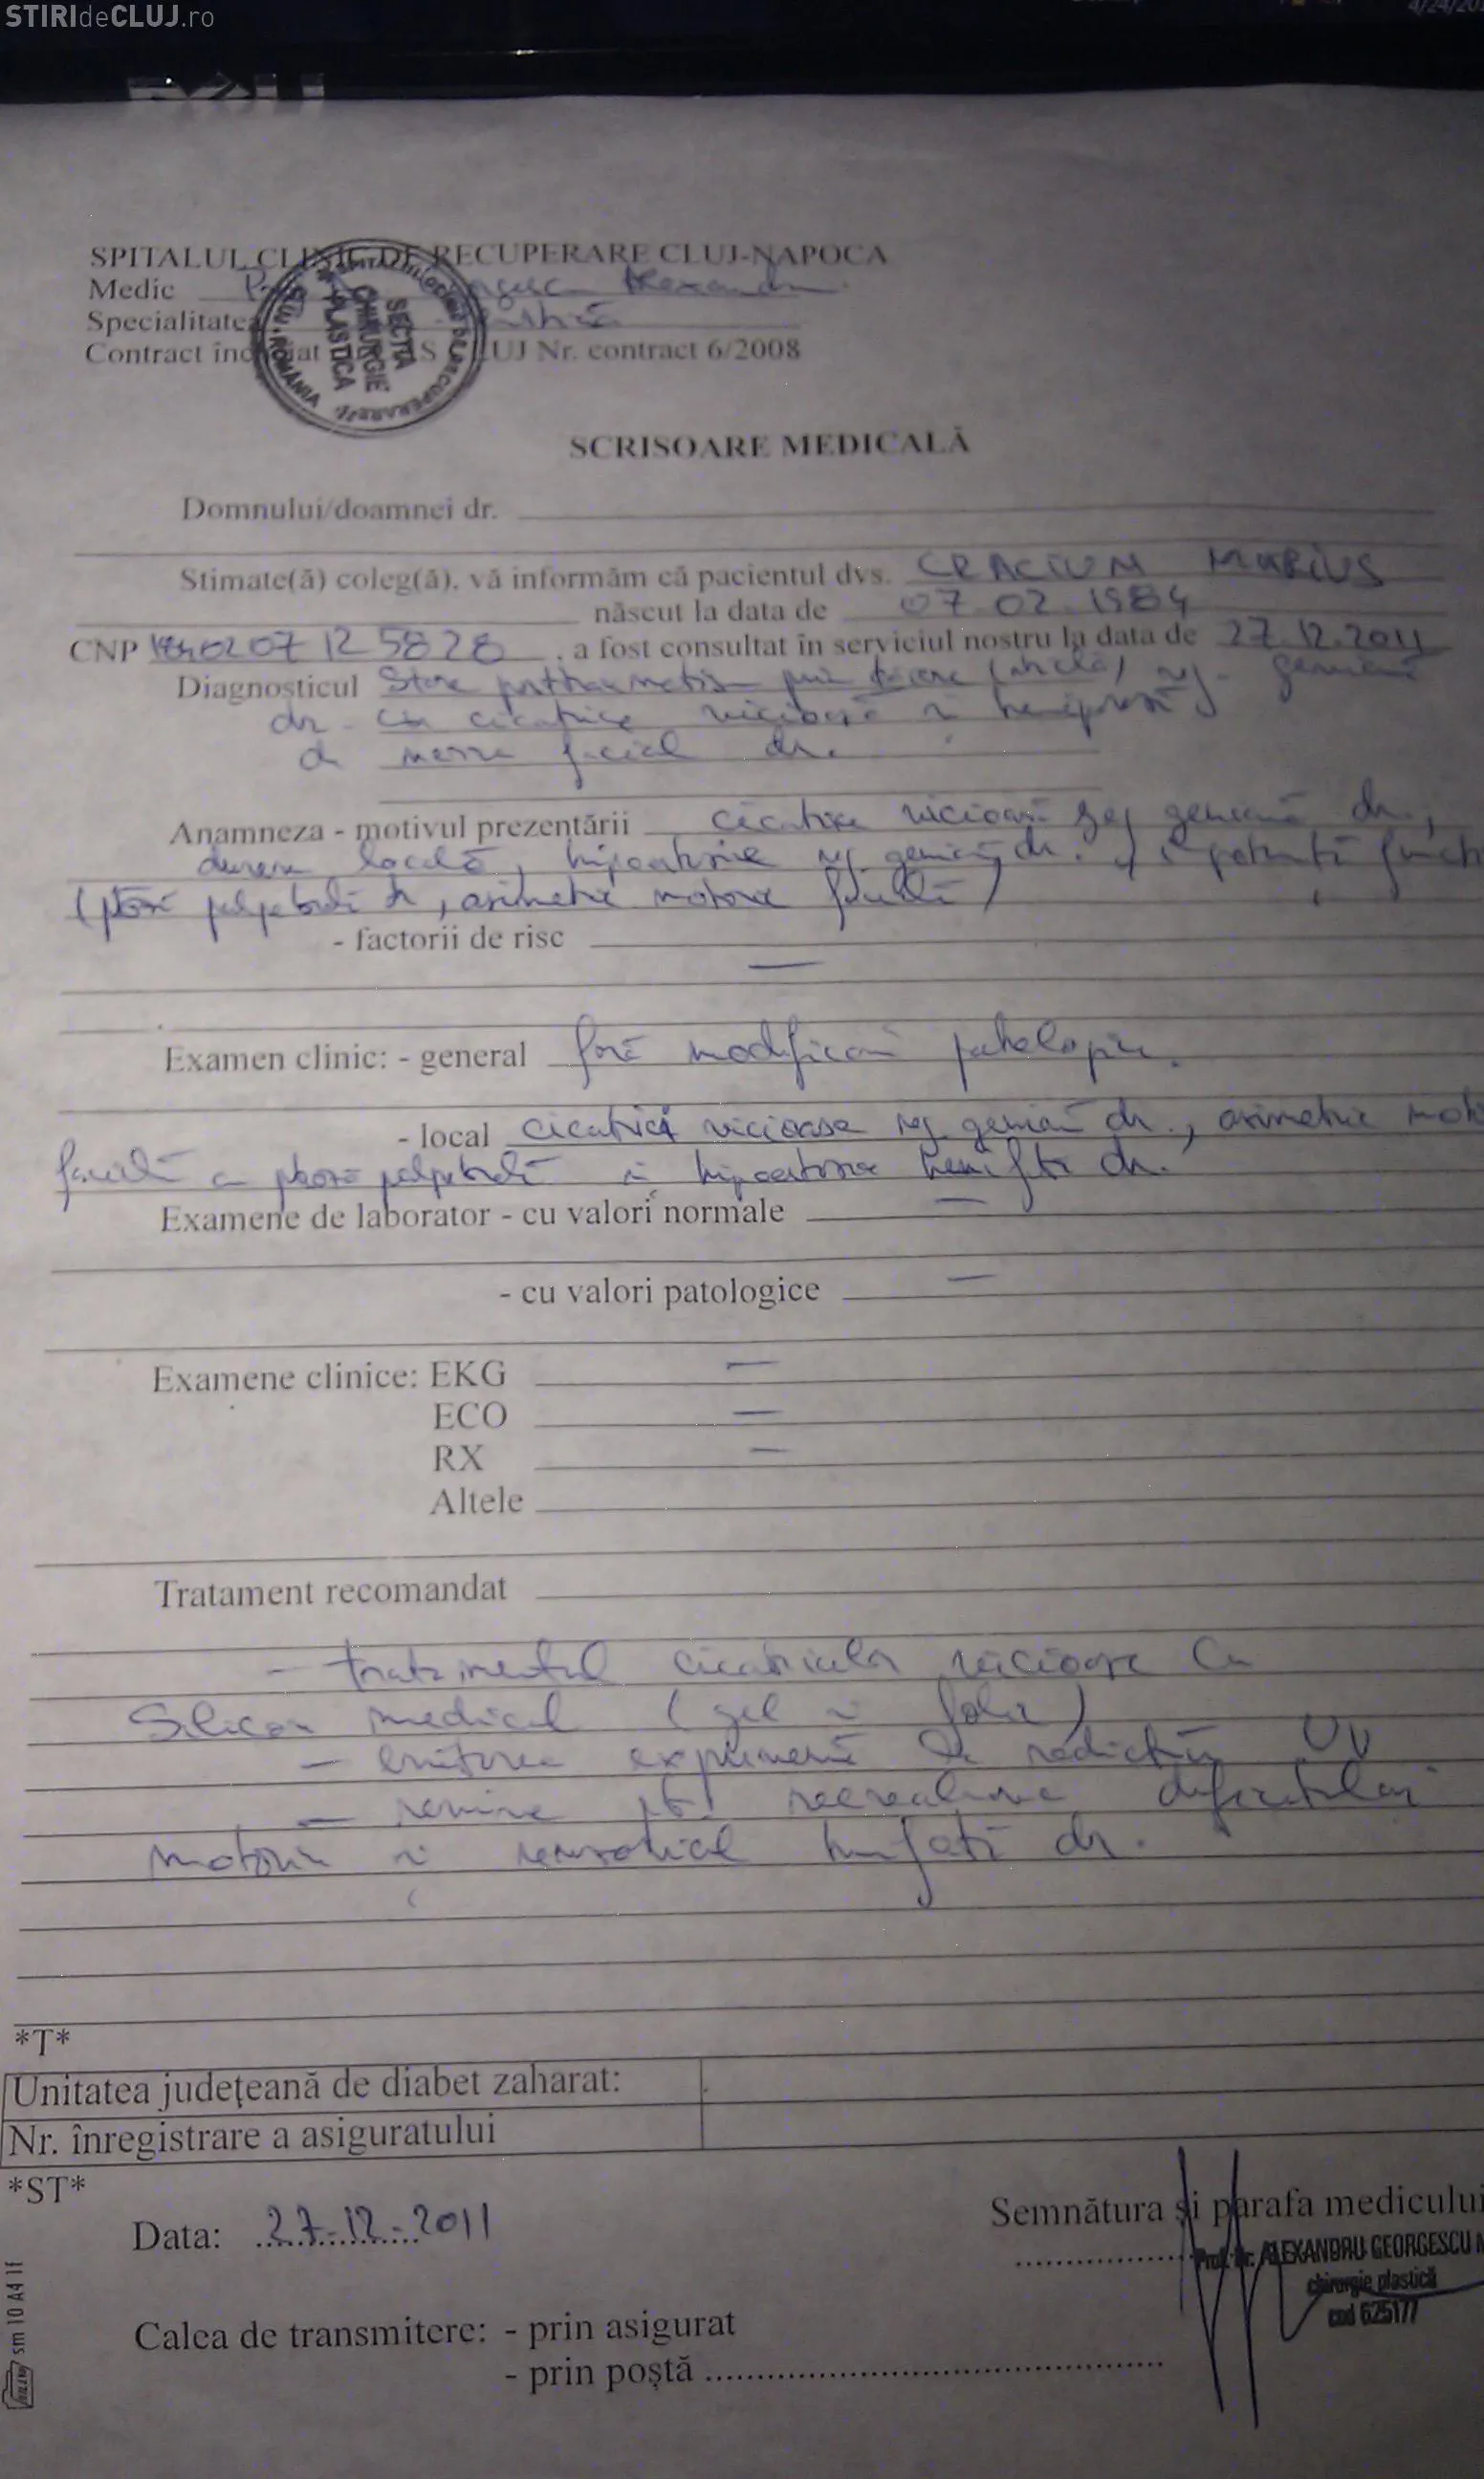 STIRIdeCLUJ.ro
4/24/20
DELL
SPITALUL CLINIC DE RECUPERARE CLUJ-NAPOCA
Medic Alexandru
Specialitatea
Contract încheiat CAS CLUJ Nr. contract 6/2008
SECTIA
CHIRURGIE
PLASTICA
ROMANIA
SCRISOARE MEDICALĂ
Domnului/doamnei dr.
Stimate(ă) coleg(ă), vă informăm că pacientul dvs. CRACIUN MARIUS
născut la data de 07.02.1984
CNP 1840207125828, a fost consultat în serviciul nostru la data de 27.12.2011
Diagnosticul Stare posttraumatism prin (sticlă) reg. geniană
dr. cu cicatrice vicioasă și hemipareză
de nerv facial dr.
Anamneza - motivul prezentării cicatrice vicioasă reg geniană dr.,
durere locală, hipoestezie reg geniană dr., impotență funct
(ptoză palpebrală dr, asimetrie motorie facială)
- factorii de risc
—
Examen clinic: - general fără modificări patologice.
- local cicatrici vicioase reg geniană dr., asimetrie moto
facială cu ptoză palpebrală și hipoestezie hemifață dr.
Examene de laborator - cu valori normale —
- cu valori patologice —
Examene clinice: EKG —
ECO —
RX —
Altele
Tratament recomandat
- tratamentul cicatricelor vicioase cu
Silicon medical (gel și folie)
- evitarea expunerii la radiații UV
- revine pt. reevaluarea deficitului
motoriu și senzorial hemifață dr.
*T*
Unitatea județeană de diabet zaharat:
Nr. înregistrare a asiguratului
*ST*
Data: 27.12.2011
Semnătura și parafa medicului
Prof. Dr. ALEXANDRU GEORGESCU
chirurgie plastică
cod 625177
Calea de transmitere: - prin asigurat
- prin poștă
sm 10 A4 1f